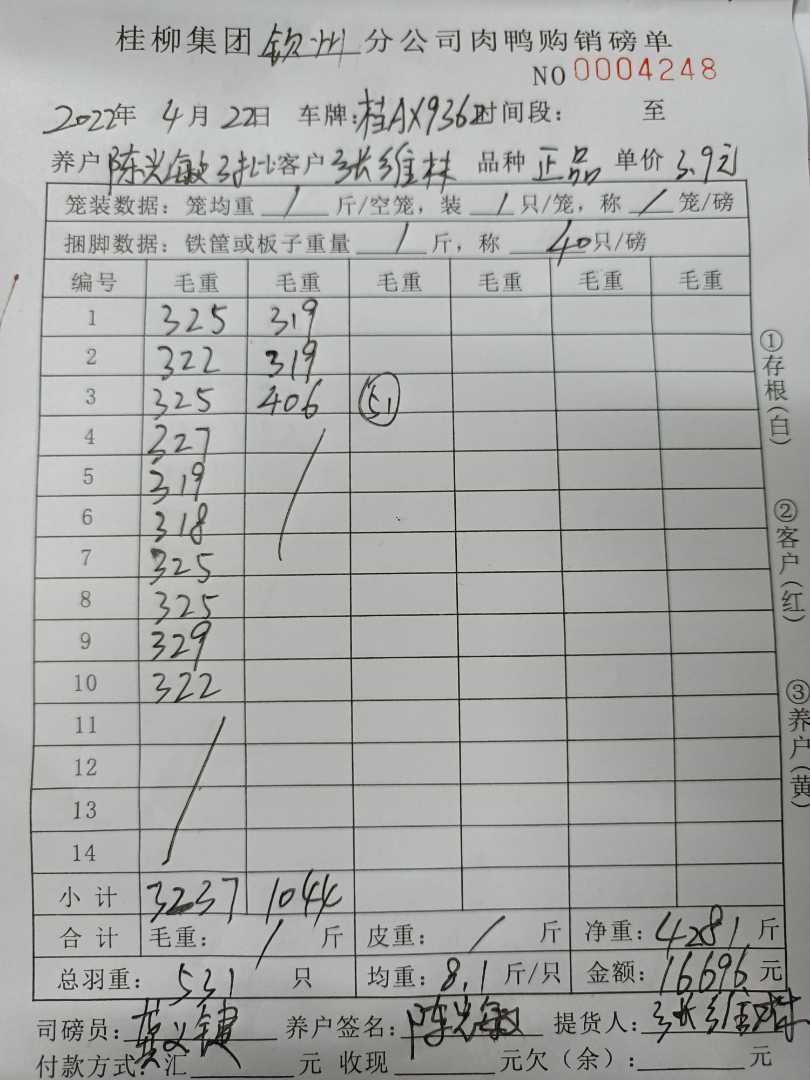 桂柳集团钦州分公司肉鸭购销磅单
NO 0004248
2022年 4月 22日 车牌:桂AX9362时间段: 至
养户陈兴敏 客户张维林 品种 正品 单价 3.9元
笼装数据:笼均重 / 斤/空笼,装 / 只/笼,称 / 笼/磅
捆脚数据:铁筐或板子重量 / 斤,称 40只/磅
编号 毛重 毛重 毛重 毛重 毛重 毛重
1 325 319
2 322 319
3 325 406 51
4 327 /
5 319
6 318
7 325
8 325
9 329
10 322
11 /
12
13
14
小计 3237 1044
合计 毛重: / 斤 皮重: / 斤 净重:4281斤
总羽重: 531 只 均重:8.1斤/只 金额:16696元
司磅员: 养户签名:陈兴敏 提货人:张维林
付款方式:汇 元 收现 元欠(余): 元
①存根(白)
②客户(红)
③养户(黄)